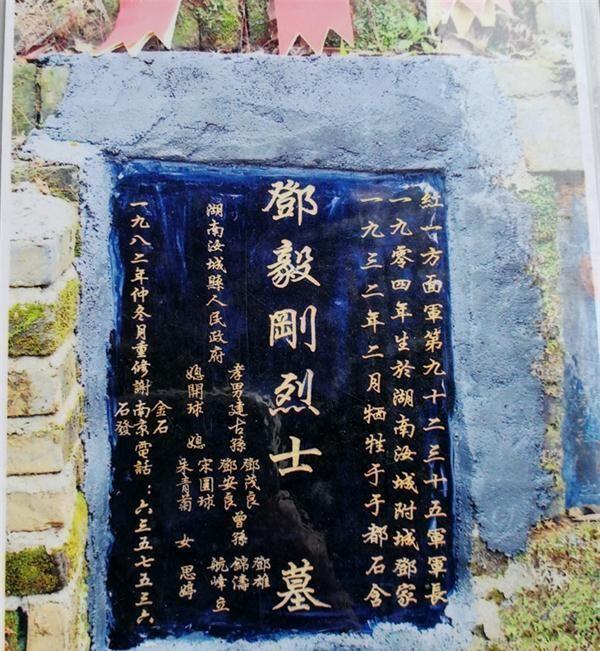 紅一方面軍第九十二三十五軍軍長
一九零四年生於湖南汝城附城鄧家
一九三二年二月牺牲于于都石含
鄧毅剛烈士墓
孝男建古孫 鄧茂良 鄧安良 曾孫 鄧雄 錦濤
媳開球 媳 宋圓球 朱青南 女 思婷 航峰 立
湖南汝城縣人民政府
一九八二年仲冬月重修謝南京電話：六三五七五三六
金石
石發